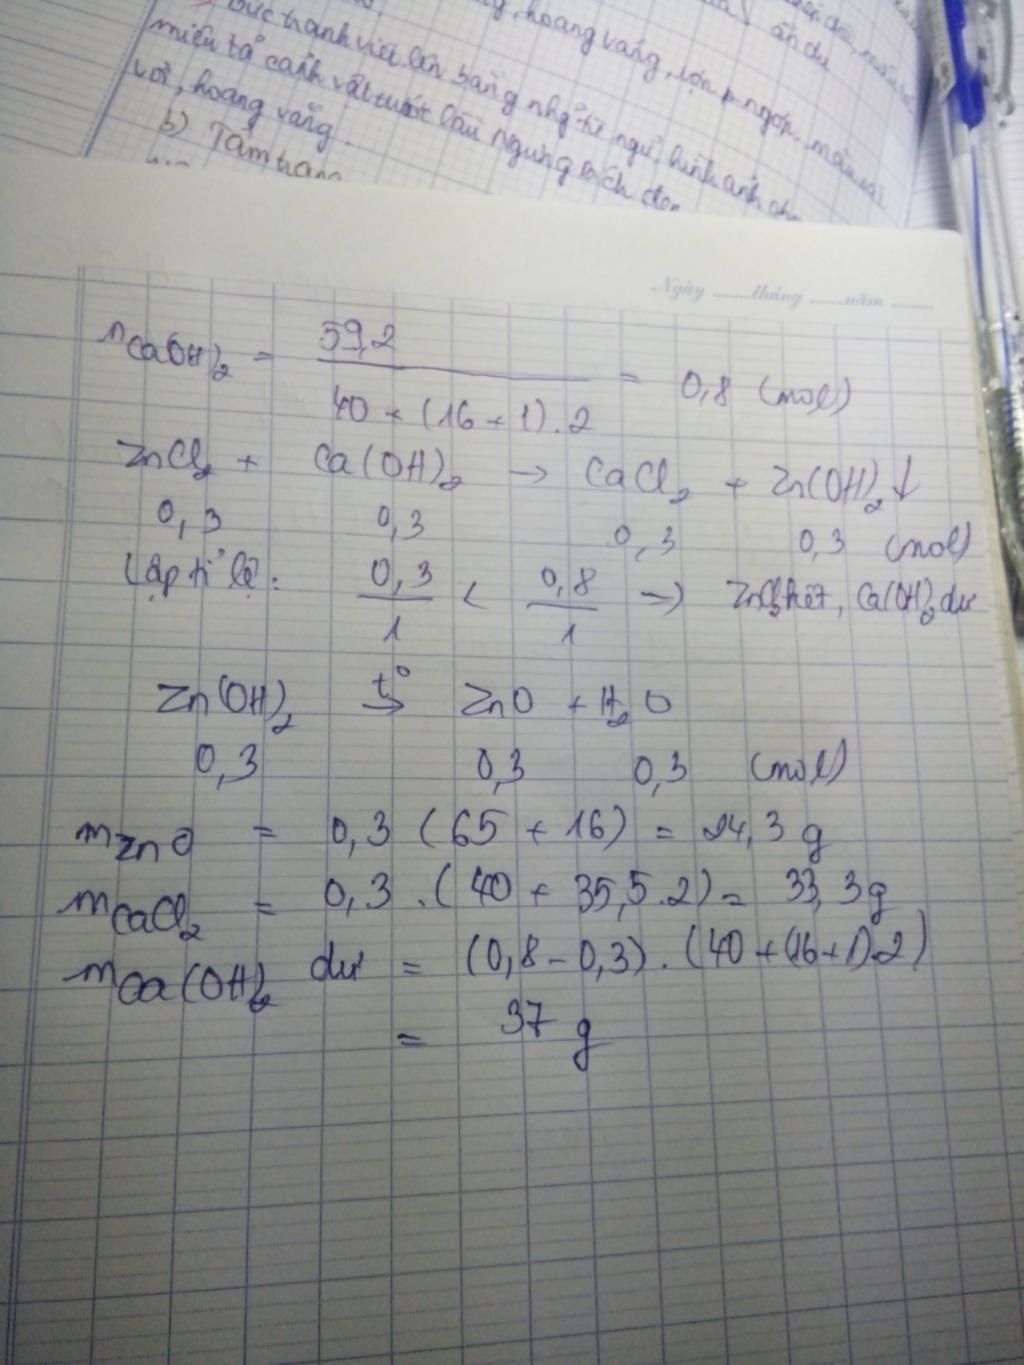 hoang vắng, lợn
ẩn dụ
Bức tranh viết lên bằng
ngữ, hình ảnh
miêu tả cảnh vật
lâu ngưng
vời, hoang vắng.
b) Tâm trạng
Ngày ...... tháng ...... năm ......
nCa(OH)₂ = 59,2 / (40 + (16 + 1).2) = 0,8 (mol)
ZnCl₂ + Ca(OH)₂ → CaCl₂ + Zn(OH)₂↓
0,3 0,3 0,3 0,3 (mol)
Lập tỉ lệ: 0,3/1 < 0,8/1 => ZnCl₂ hết, Ca(OH)₂ dư
Zn(OH)₂ t°→ ZnO + H₂O
0,3 0,3 0,3 (mol)
mZnO = 0,3 (65 + 16) = 24,3 g
mCaCl₂ = 0,3 . (40 + 35,5.2) = 33,3g
mCa(OH)₂ dư = (0,8 - 0,3). (40 + (16 + 1).2)
= 37 g